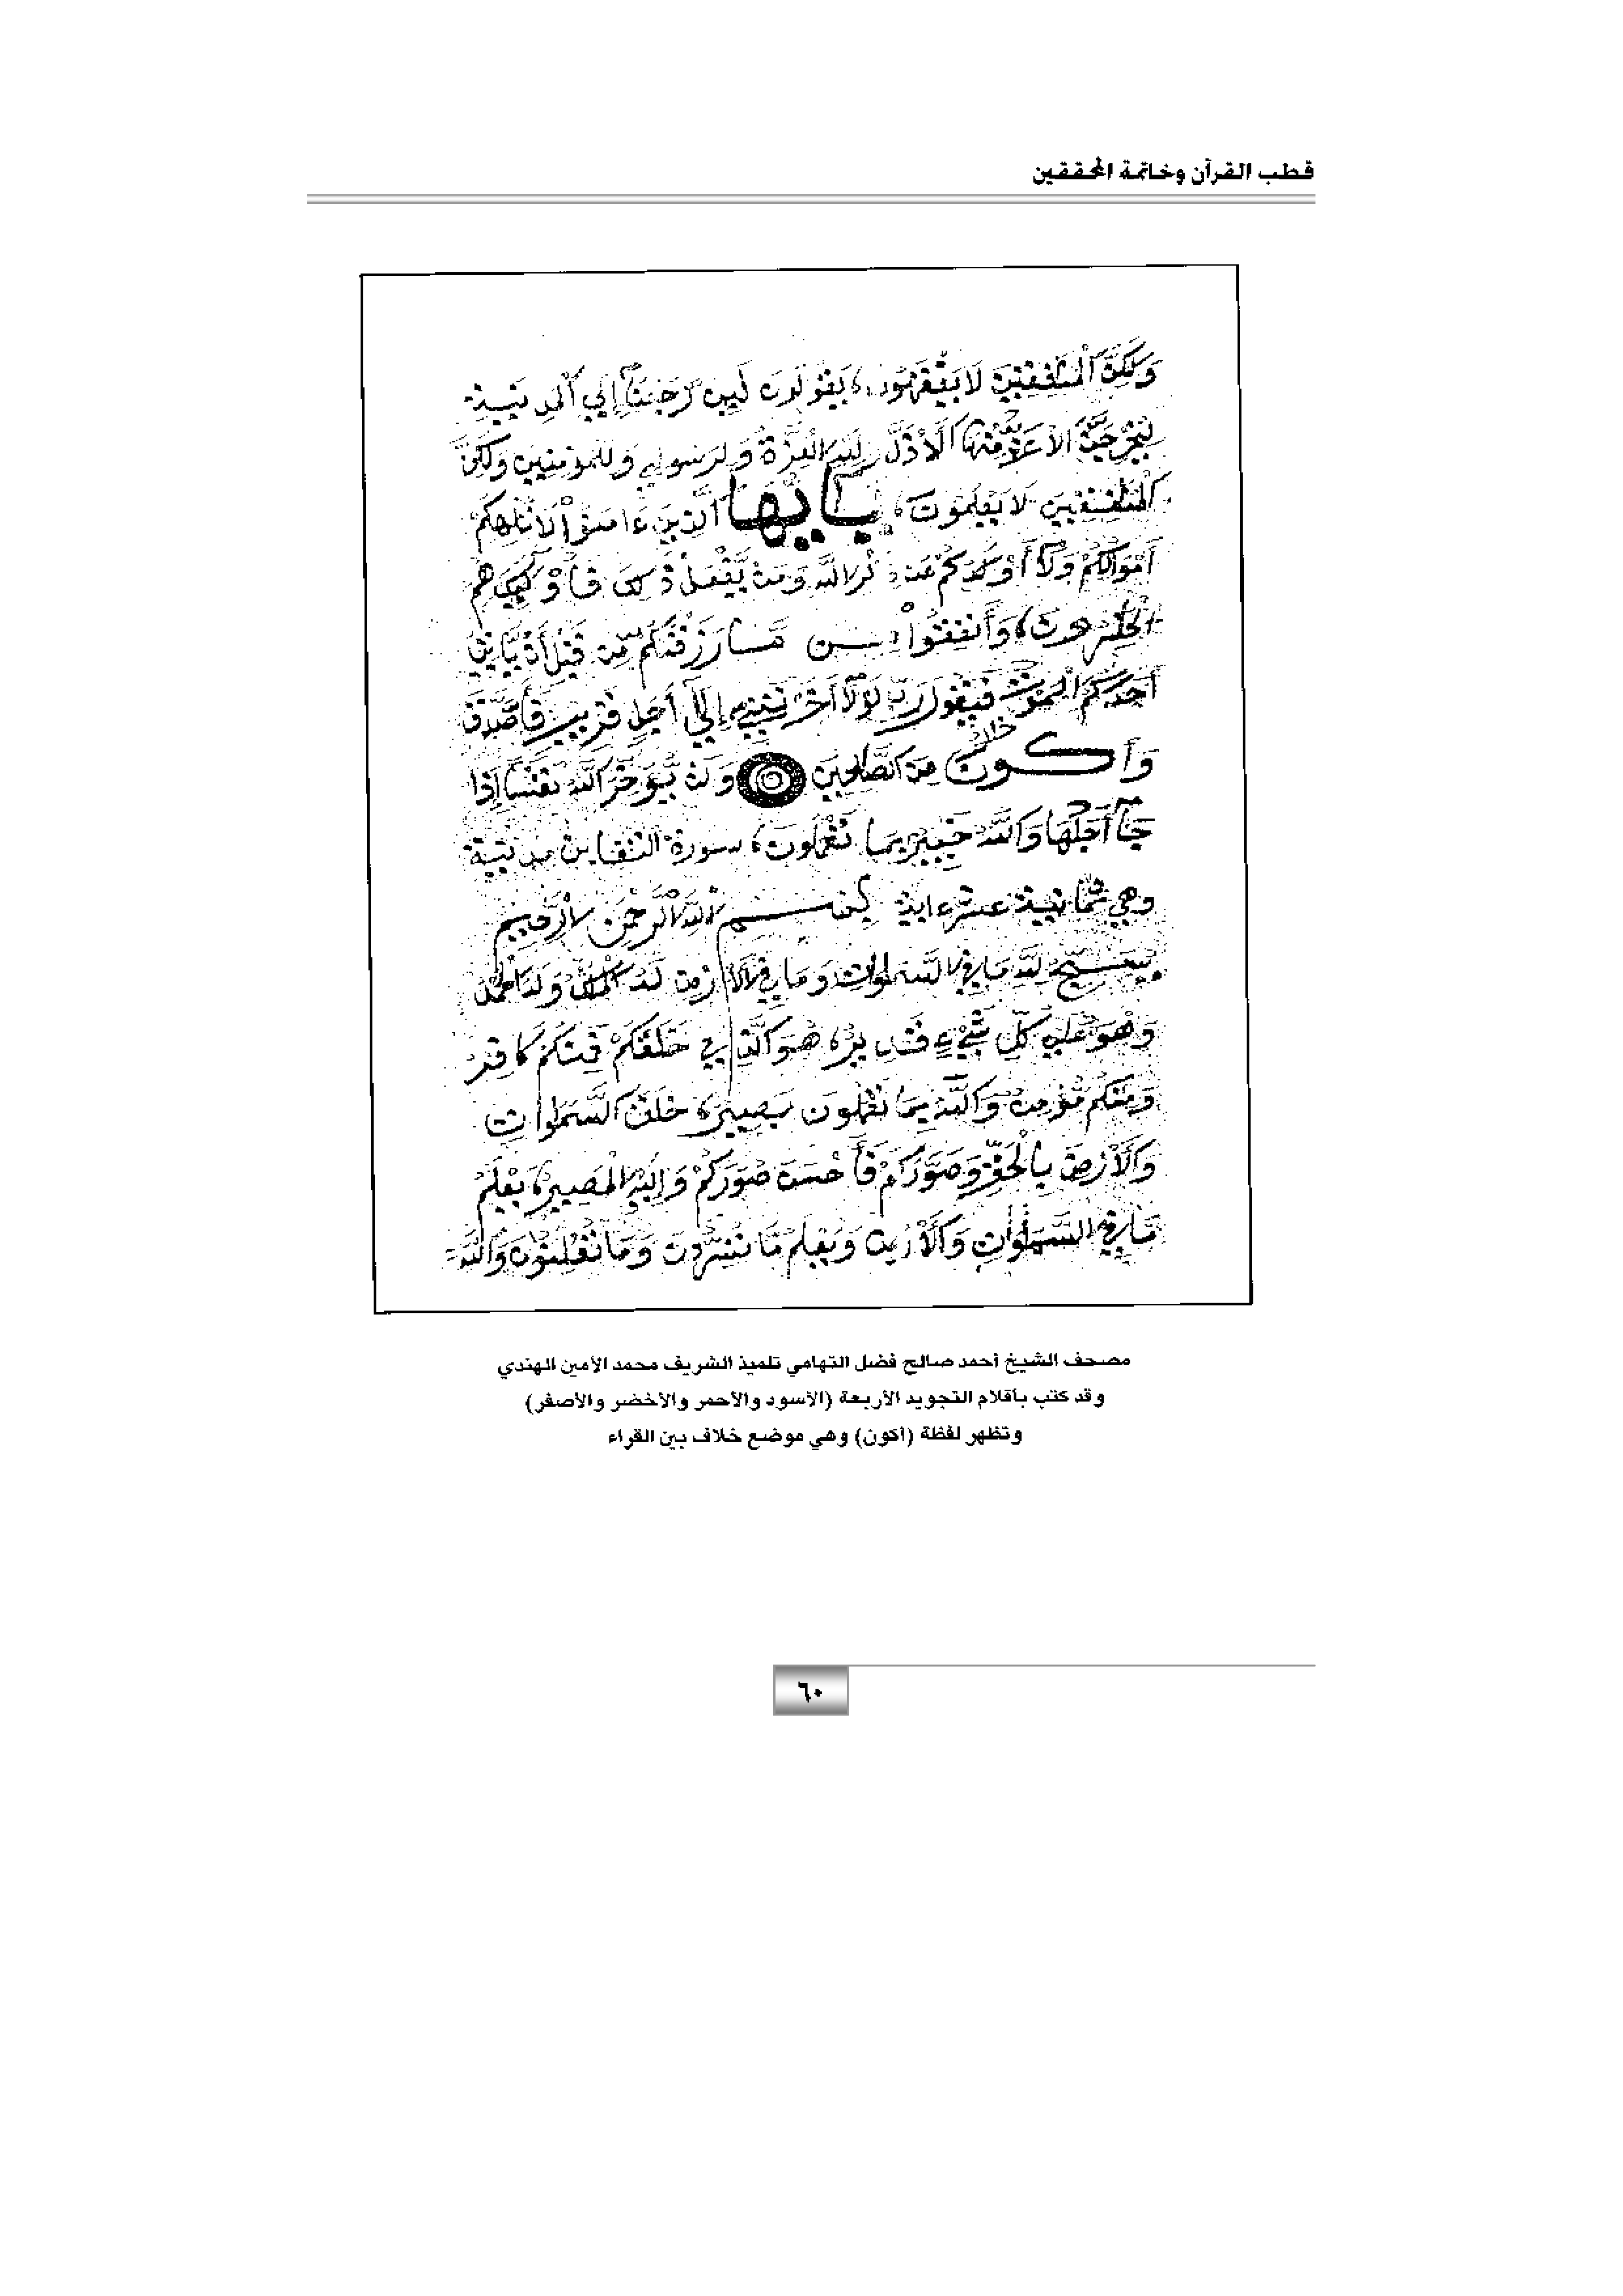 قطب القرآن وخاتمة المحققين
وَلَكِنَّ الْمُنَٰفِقِينَ لَا يَفْقَهُونَ يَقُولُونَ لَئِن رَّجَعْنَا إِلَى الْمَدِينَةِ
لَيُخْرِجَنَّ الْأَعَزُّ مِنْهَا الْأَذَلَّ وَلِلَّهِ الْعِزَّةُ وَلِرَسُولِهِ وَلِلْمُؤْمِنِينَ وَلَكِنَّ
الْمُنَٰفِقِينَ لَا يَعْلَمُونَ يَٰأَيُّهَا الَّذِينَ ءَامَنُوا لَا تُلْهِكُمْ
أَمْوَٰلُكُمْ وَلَا أَوْلَٰدُكُمْ عَن ذِكْرِ اللَّهِ وَمَن يَّفْعَلْ ذَٰلِكَ فَأُوْلَٰئِكَ هُمُ
الْخَٰسِرُونَ وَأَنفِقُوا مِن مَّا رَزَقْنَٰكُم مِّن قَبْلِ أَن يَّأْتِيَ
أَحَدَكُمُ الْمَوْتُ فَيَقُولَ رَبِّ لَوْلَا أَخَّرْتَنِي إِلَىٰ أَجَلٍ قَرِيبٍ فَأَصَّدَّقَ
وَأَكُونَ مِنَ الصَّٰلِحِينَ وَلَن يُّؤَخِّرَ اللَّهُ نَفْسًا إِذَا
جَاءَ أَجَلُهَا وَاللَّهُ خَبِيرٌ بِمَا تَعْمَلُونَ سورة التغابن مدنية
وهي ثمانية عشر ءاية بسم الله الرحمن الرحيم
يُسَبِّحُ لِلَّهِ مَا فِي السَّمَٰوَاتِ وَمَا فِي الْأَرْضِ لَهُ الْمُلْكُ وَلَهُ الْحَمْدُ
وَهُوَ عَلَىٰ كُلِّ شَيْءٍ قَدِيرٌ هُوَ الَّذِي خَلَقَكُمْ فَمِنكُمْ كَافِرٌ
وَمِنكُم مُّؤْمِنٌ وَاللَّهُ بِمَا تَعْمَلُونَ بَصِيرٌ خَلَقَ السَّمَٰوَاتِ
وَالْأَرْضَ بِالْحَقِّ وَصَوَّرَكُمْ فَأَحْسَنَ صُوَرَكُمْ وَإِلَيْهِ الْمَصِيرُ يَعْلَمُ
مَا فِي السَّمَٰوَاتِ وَالْأَرْضِ وَيَعْلَمُ مَا تُسِرُّونَ وَمَا تُعْلِنُونَ وَاللَّهُ
مصحف الشيخ أحمد صالح فضل التهامي تلميذ الشريف محمد الأمين الهندي
وقد كتب بأقلام التجويد الأربعة (الأسود والأحمر والأخضر والأصفر)
وتظهر لفظة (أكون) وهي موضع خلاف بين القراء
٦٠